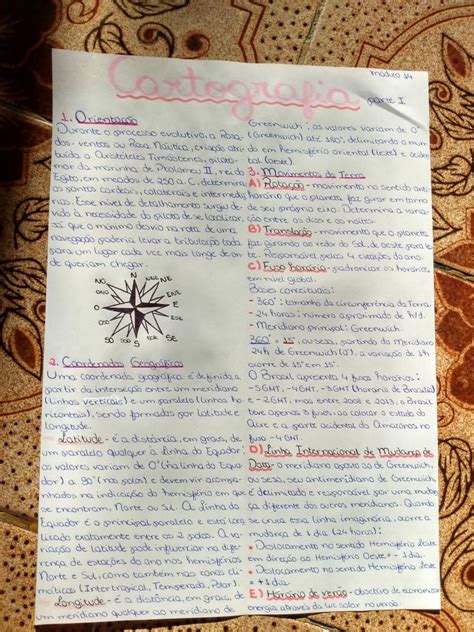 Módulo 14
Cartografia
parte I
1. Orientação
Durante o processo evolutivo, a Rosa-
dos-ventos ou Rosa Náutica, criação atri-
buída a Aristóteles Timóstenes, piloto-
mor da marinha de Ptolomeu II, rei do
Egito, em meados de 250 a.C, determinou
os pontos cardeais, colaterais e intermediá
rios. Esse nível de detalhamento surgiu de-
vido à necessidade do piloto de se localizar,
já que o mínimo desvio na rota de uma
navegação poderia levar a tripulação toda
para um lugar cada vez mais longe de on-
de queriam chegar.
N
NO
NE
O
E
SO
S
SE
2. Coordenadas Geográficas
Uma coordenada geográfica é definida a
partir da interseção entre um meridiano
(linhas verticais) e um paralelo (linhas ho
rizontais), sendo formados por latitude e
longitude.
Latitude - é a distância, em graus, de
um paralelo qualquer à Linha do Equador,
os valores variam de 0° (na linha do Equa
dor) a 90° (nos polos) e devem vir acompa-
nhados na indicação do hemisfério em que
se encontram. Norte ou Sul. A Linha do
Equador é o principal paralelo e está loca
lizado exatamente entre os 2 polos. A va-
riação de latitude pode influenciar na dife
rença de estações do ano nos hemisférios
Norte e Sul, como também nas zonas cli-
máticas (Intertropical, Temperada, Polar).
Longitude - é a distância, em graus, de
um meridiano qualquer ao meridiano de
Greenwich; os valores variam de 0°
(Greenwich) até 180°, delimitando o mun-
do em hemisfério oriental (leste) e ociden
tal (oeste).
3. Movimentos da Terra
A) Rotação - movimento no sentido anti-
horário que o planeta faz girar em torno
de seu próprio eixo. Determina a varia-
ção entre os dias e as noites.
B) Translação - movimento que o planeta
faz girando ao redor do Sol, de oeste para les
te. Responsável pelas 4 estações do ano.
C) Fuso horário - padronizar os horários
em nível global.
Bases conceituais:
- 360° : tamanho da circunferência da Terra.
- 24 horas : número aproximado de h/d.
- Meridiano principal: Greenwich.
360° = 15°, ou seja, partindo do Meridiano
24h de Greenwich (0°), a variação de 1h
ocorre de 15° em 15°.
O Brasil apresenta 4 fusos horários:
-5GMT, -4GMT, -3GMT (horário de Brasília)
e -2GMT, mas entre 2008 e 2013, o Brasil
teve apenas 3 fusos, ao colocar o estado do
Acre e a parte ocidental do Amazonas no
fuso -4 GMT.
D) Linha Internacional de Mudança de
Data - o meridiano oposto ao de Greenwich,
ou seja, seu antimeridiano de Greenwich
é delimitado e responsável por uma mudan
ça diferente dos outros meridianos. Quando
se cruza essa linha imaginária, ocorre a
mudança de 1 dia (24 horas):
• Deslocamento no sentido hemisfério Leste
em direção ao Hemisfério Oeste = - 1 dia.
• Deslocamento no sentido Hemisfério Oeste
= + 1 dia.
E) Horário de verão - objetivo de economizar
energia através da luz solar no verão.